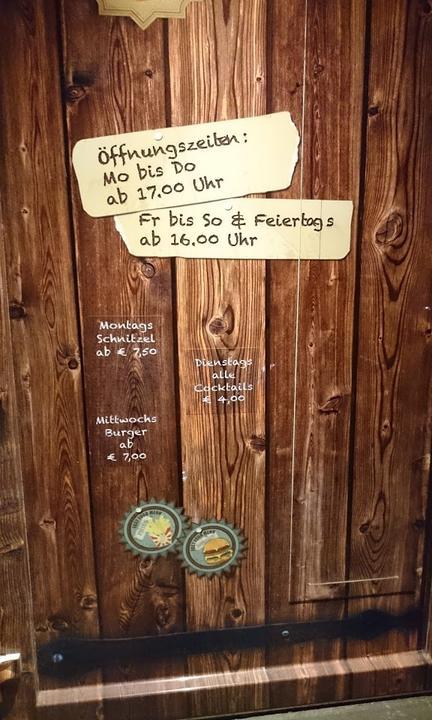 Öffnungszeiten:
Mo bis Do
ab 17.00 Uhr
Fr bis So & Feiertags
ab 16.00 Uhr
Montags
Schnitzel
ab € 7,50
Dienstags
alle
Cocktails
€ 4,00
Mittwochs
Burger
ab
€ 7,00